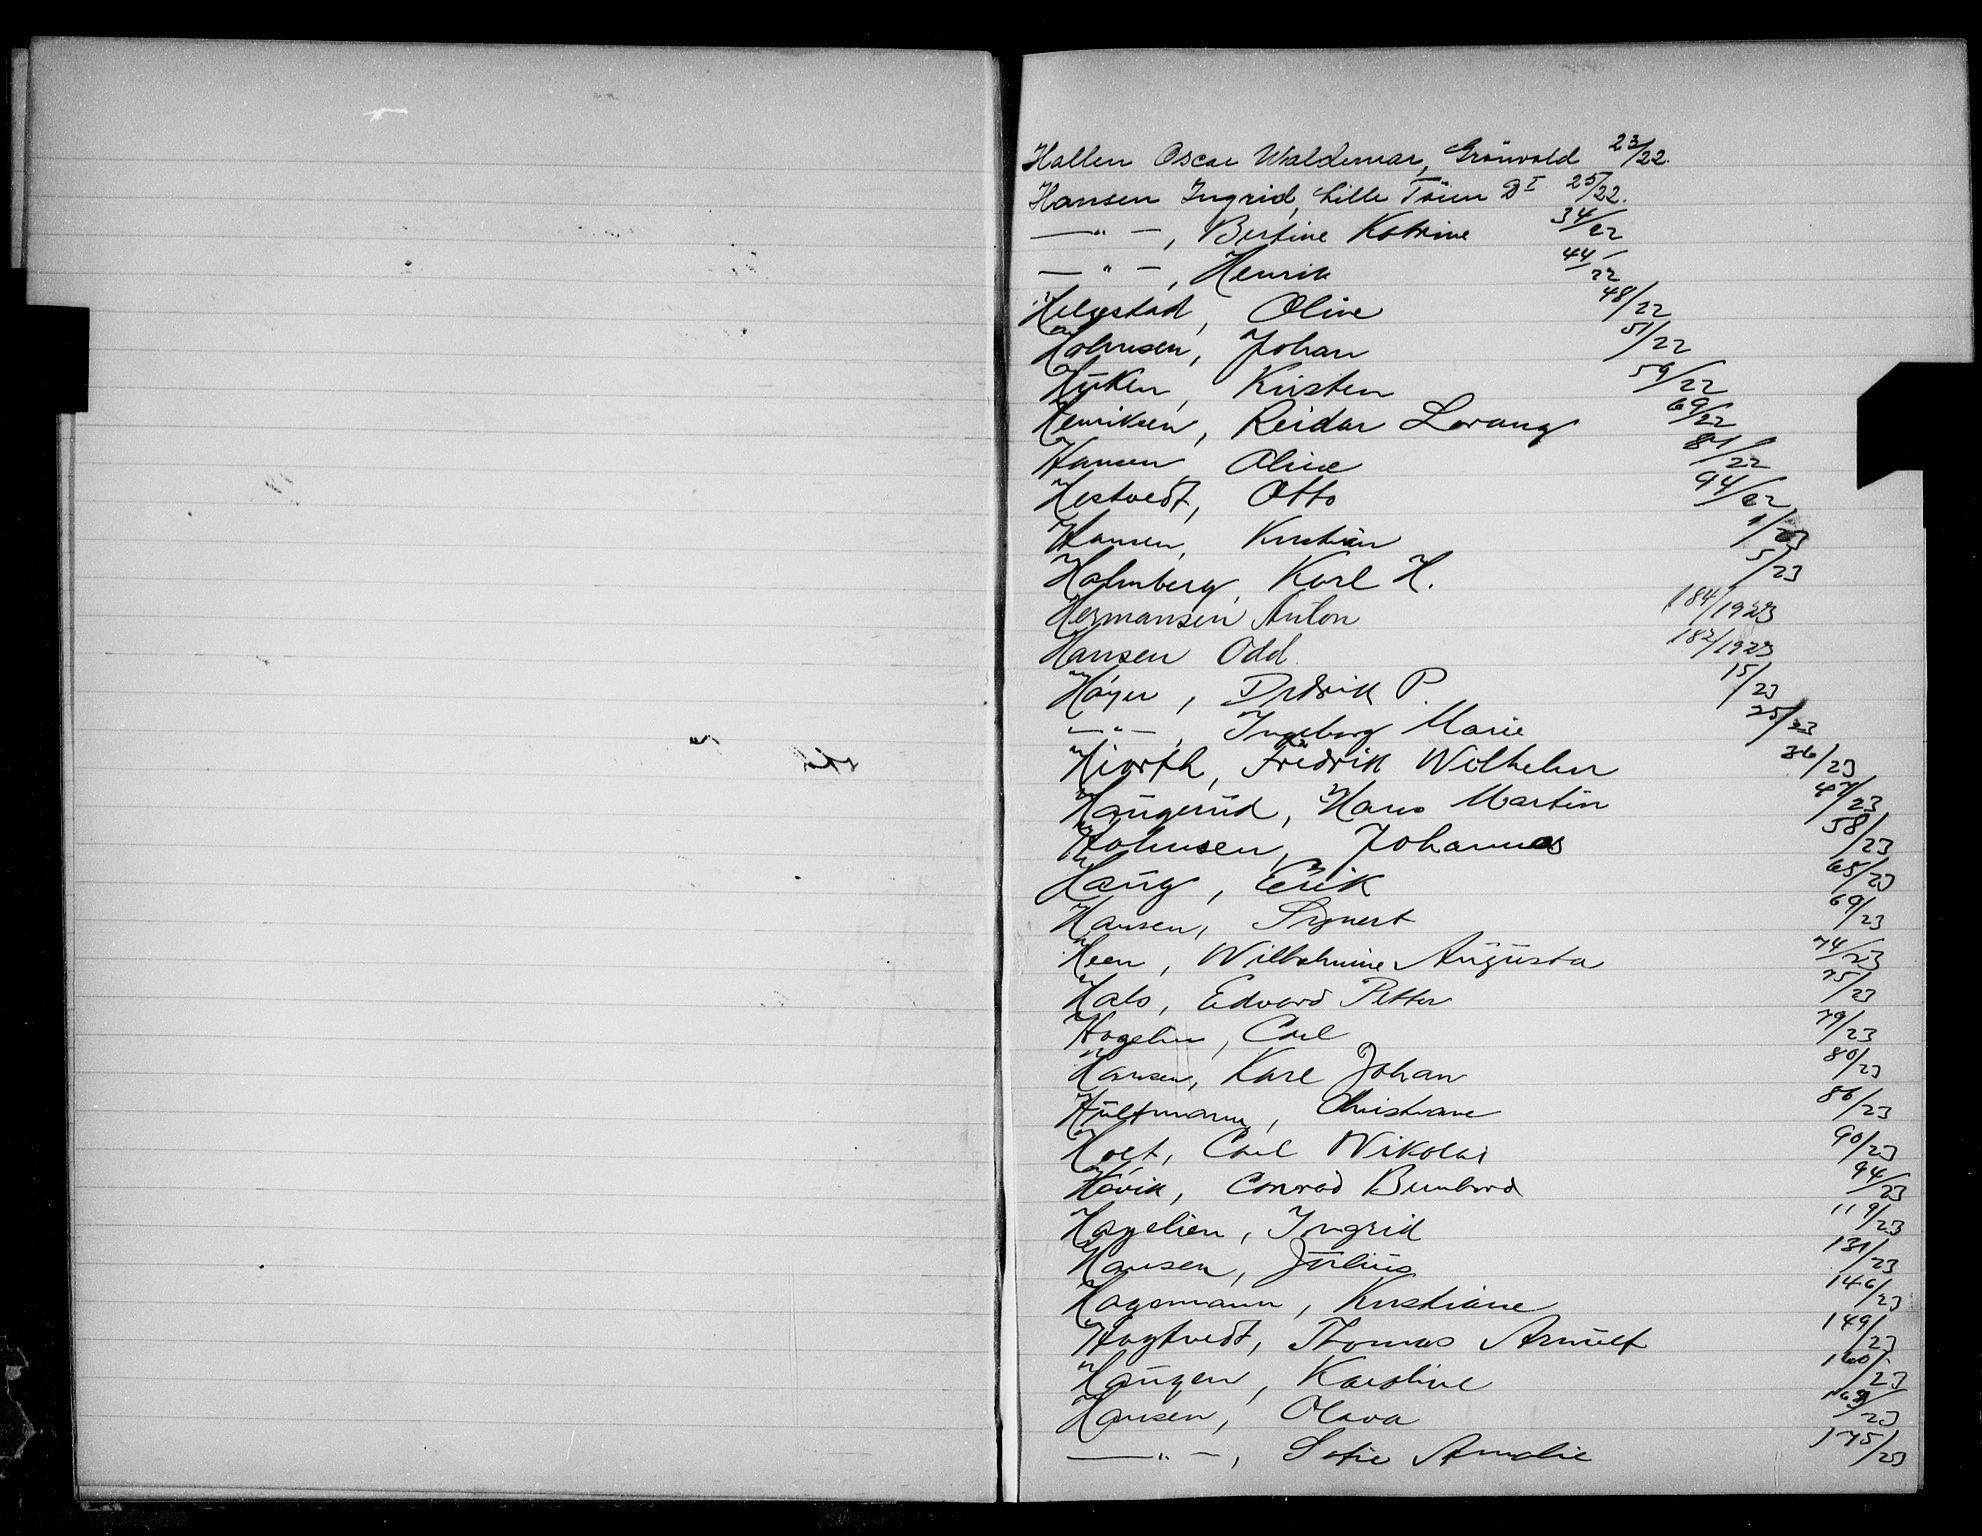 Hallen Oscar Waldemar, Grönvold 23/22.
Hansen Ingrid, Lille Töien D I 25/22.
—"—, Bertine Katrine 34/22
—"—, Henrik 44/22
Helgestad, Oline 48/22
Holmsen, Johan 51/22
Kristen 59/22
Henriksen, Reidar Lorang 69/22
Hansen Oline 81/22
Hestvedt, Otto 94/22
Hansen, Kristian 1/23
Holmberg, Karl H. 5/23
Hermansen Anton 184/1923
Hansen Odd. 182/1923
Höyer, Fredrik P. 15/23
—"—, Ingeborg Marie 25/23
Hiorth, Fredrik Wilhelm 36/23
Haugerud, Hans Martin 47/23
Holmsen, Johannes 58/23
Haug, Erik 65/23
Hansen, Sigvert 69/23
Heen, Wilhelmine Augusta 74/23
Hals, Edvard Petter 75/23
Hagelien, Carl 79/23
Hansen, Karl Johan 80/23
Hultmann, Christiane 86/23
Holt, Carl Nikolai 90/23
Hövik, Conrad Bernhard 94/23
Hagelien, Ingrid 119/23
Hansen, Julius 131/23
Hagemann, Kristiane 146/23
Hogtvedt, Thomas Arnulf 149/23
Haugen, Karoline 160/23
Hansen, Olava 169/23
—"—, Sofie Amalie 175/23